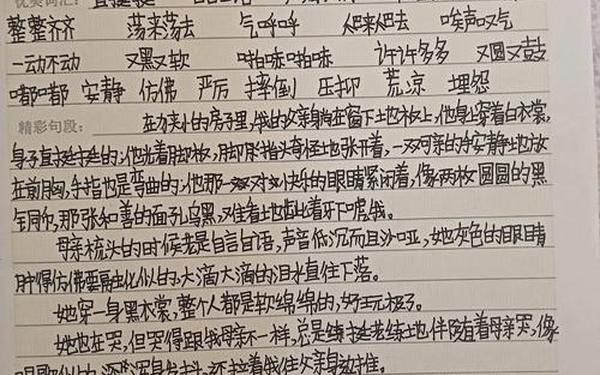 整整齐齐 荡来荡去 气呼呼 爬来爬去 唉声叹气
一动不动 又黑又软 啪哧啪哧 许许多多 又圆又鼓
嘟嘟 安静 仿佛 严厉 摔倒 压抑 荒凉 埋怨
精彩句段: 在力夹小的房子里,我的父亲躺在窗下地板上,他身上穿着白衣裳,
身子直挺挺的;他光着脚板,脚指头奇怪地张开着,一双可亲的手安静地放
在前胸,手指也是弯曲的;他那一对对快乐的眼睛紧闭着,像两枚圆圆的黑
铜，那张和善的面子乌黑,难看地龇着牙下唬我。
母亲梳头的时候老是自言自语,声音低沉而且沙哑,她灰色的眼睛
肿得仿佛要融化似的,大滴大滴的泪水直往下落。
她穿一身黑衣裳,整个人都是软绵绵的,好玩极了。
她也在哭,但哭得跟我母亲不一样,总是练地伴随着母亲哭,像